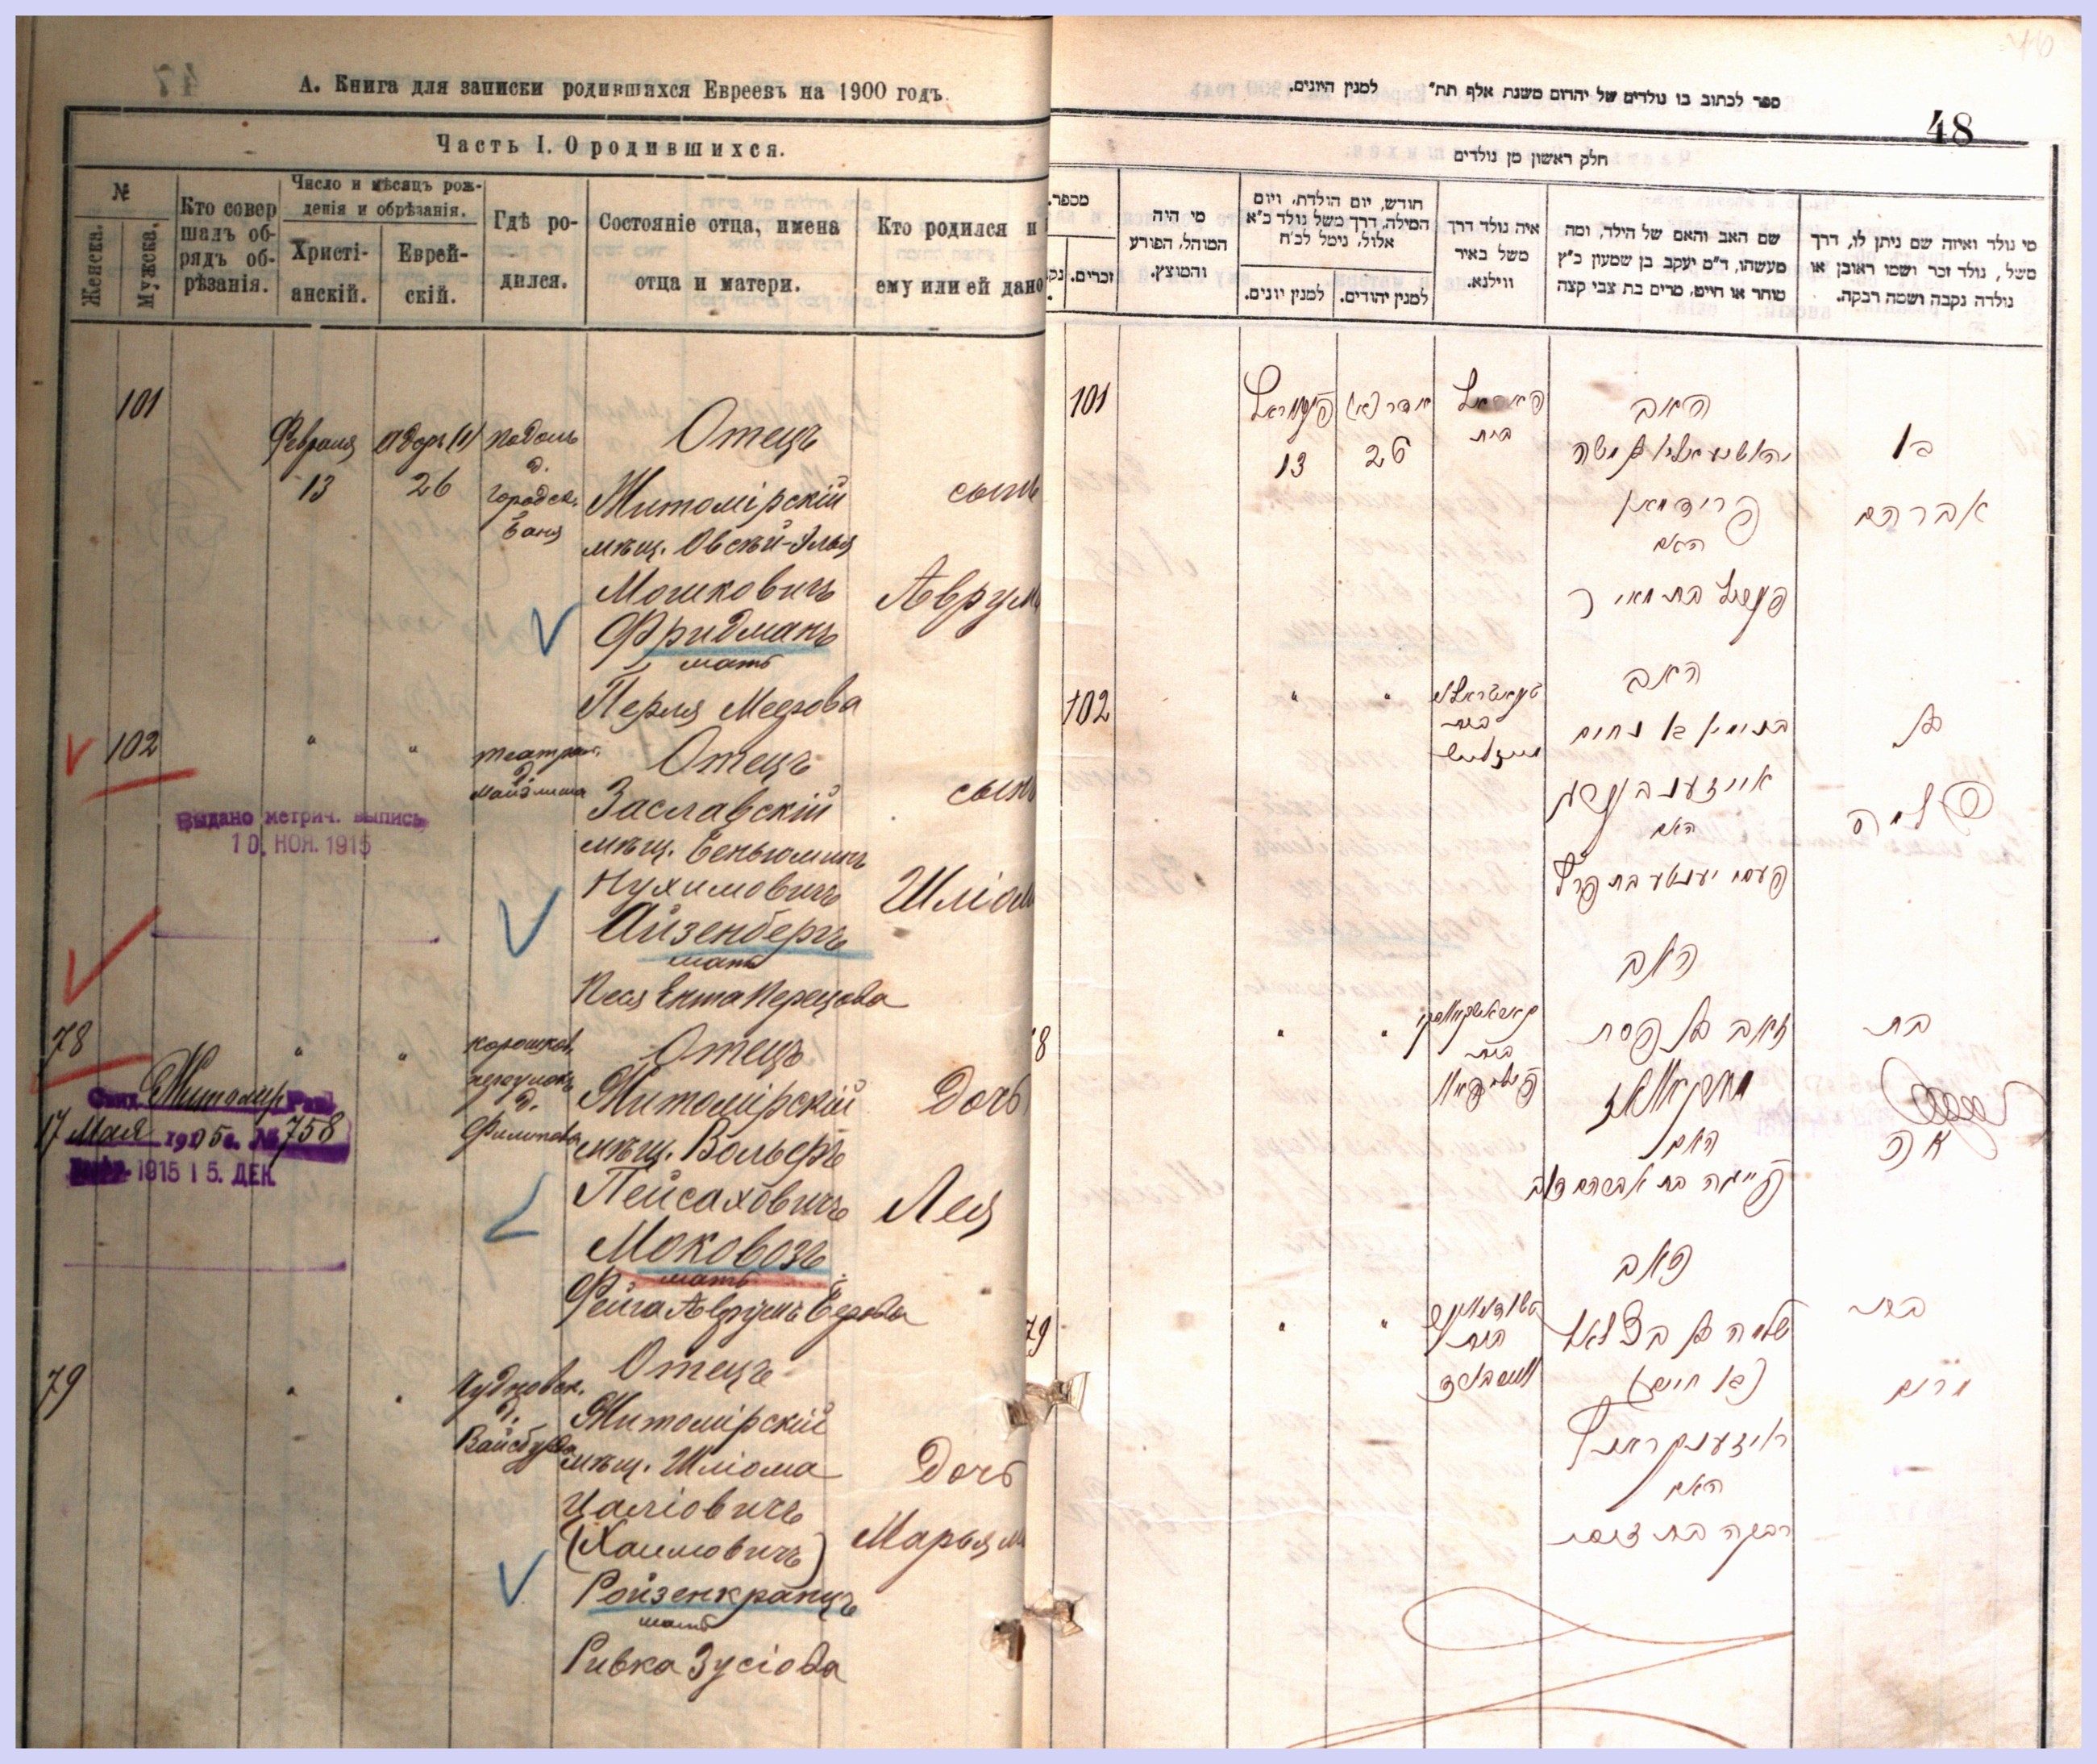 А. Книга для записки родившихся Евреевъ на 1900 годъ.
Часть I. О родившихся.
№
Женска.
Мужска.
Кто совер
шалъ об-
рядъ об-
рѣзанія.
Число и мѣсяцъ рож-
денія и обрѣзанія.
Христі-
анскій.
Еврей-
скій.
Гдѣ ро-
дился.
Состояніе отца, имена
отца и матери.
Кто родился и
ему или ей дано
101
Февраля
13
Адоръ (1)
26
Подоль
д.
городск.
баня
Отецъ
Житомірскій
мѣщ. Овсѣй-Элья
Мошковичъ
Фридманъ
мать
Перля Меерова
сынъ
Аврумъ
102
"
"
театрал.
д.
Майзлиша
Отецъ
Заславскій
мѣщ. Беньюминъ
Нухимовичъ
Айзенбергъ
мать
Песя Ента Перецова
сынъ
Шліом
Выдано метрич. выпись
10. НОЯ. 1915
78
"
"
корошков.
переулокъ
д.
Филипова
Отецъ
Житомірскій
мѣщ. Вольфъ
Пейсаховичъ
Моковозъ
мать
Фейга Аврумъ Берова
Дочь
Лея
Житомир
17 Мая 1905 г. № 758
1915 15. ДЕК.
79
"
"
Чудновск.
д.
Вайсбурда
Отецъ
Житомірскій
мѣщ. Шліома
Цаліовичъ
(Хаимовичъ)
Ройзенкранцъ
мать
Ривка Зусіова
Дочь
Марьям
ספר לכתוב בו נולדים של יהדום משנת אלף תת״ למנין היונים.
48
חלק ראשון מן נולדים
מספר.
זכרים.
נק.
מי היה
המוהל, הפורע
והמוצץ.
חודש, יום הולדת, ויום
המילה, דרך משל נולד כ״א
אלול, נימל לכ״ח
למנין יונים.
למנין יהודים.
איה נולד דרך
משל באיר
ווילנא.
שם האב והאם של הילד, ומה
מעשהו, ד״מ יעקב בן שמעון כ״ץ
סוחר או חייט, מרים בת צבי קצה
מי נולד ואיזה שם ניתן לו, דרך
משל, נולד זכר ושמו ראובן או
נולדה נקבה ושמה רבקה.
101
13
26
האב
פרידמאן
האם
בן
אברהם
102
"
"
האב
בנימין בן נחום
אייזענבערג
האם
בן
שלמה
8
"
"
האב
זאב בן פסח
האם
בת
לאה
79
"
"
האב
שלמה בן בצלאל
(בן חיים)
ראיזענקראנץ
האם
רבקה בת זוסא
בת
מרים